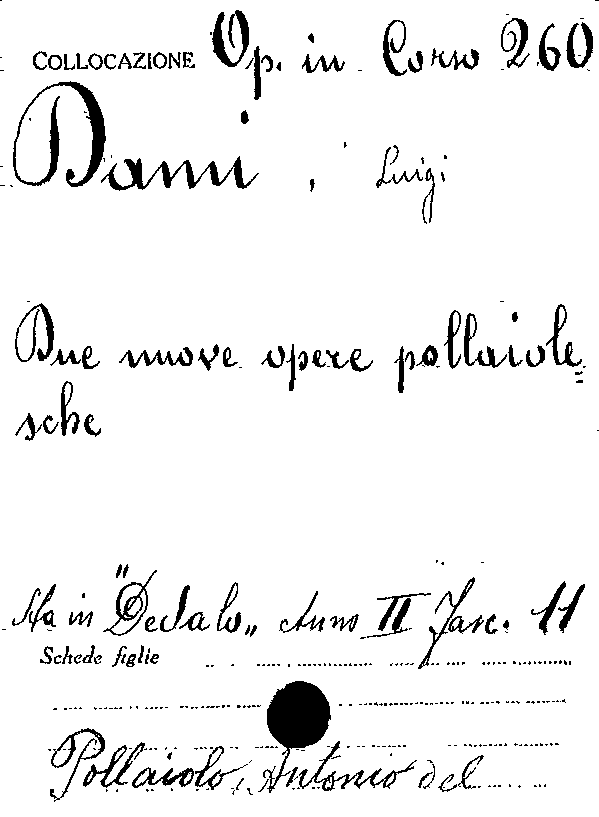 COLLOCAZIONE Op. in Corso 260
Dami, Luigi
Due nuove opere pollaiole=
sche
Sta in "Dedalo„ Anno II Fasc. 11
Schede figlie
Pollaiolo, Antonio del